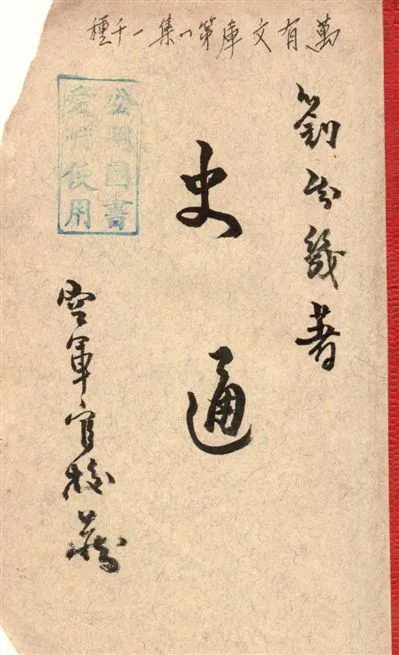 萬有文庫第一集一千種
劉知幾著
史通
公 圖書
愛 使用
空軍官校藏